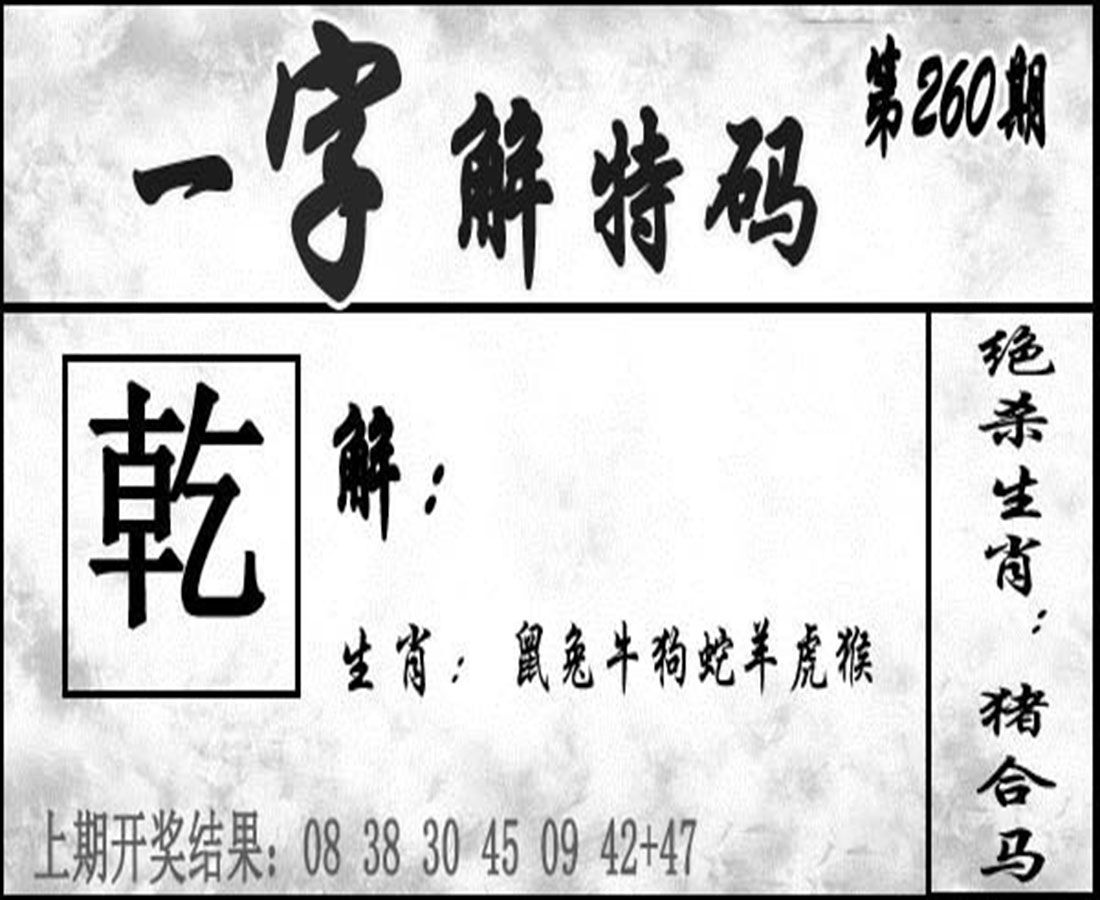 一字解特码
第260期
乾
解：
生肖：鼠兔牛狗蛇羊虎猴
上期开奖结果：08 38 30 45 09 42+47
绝杀生肖：猪合马